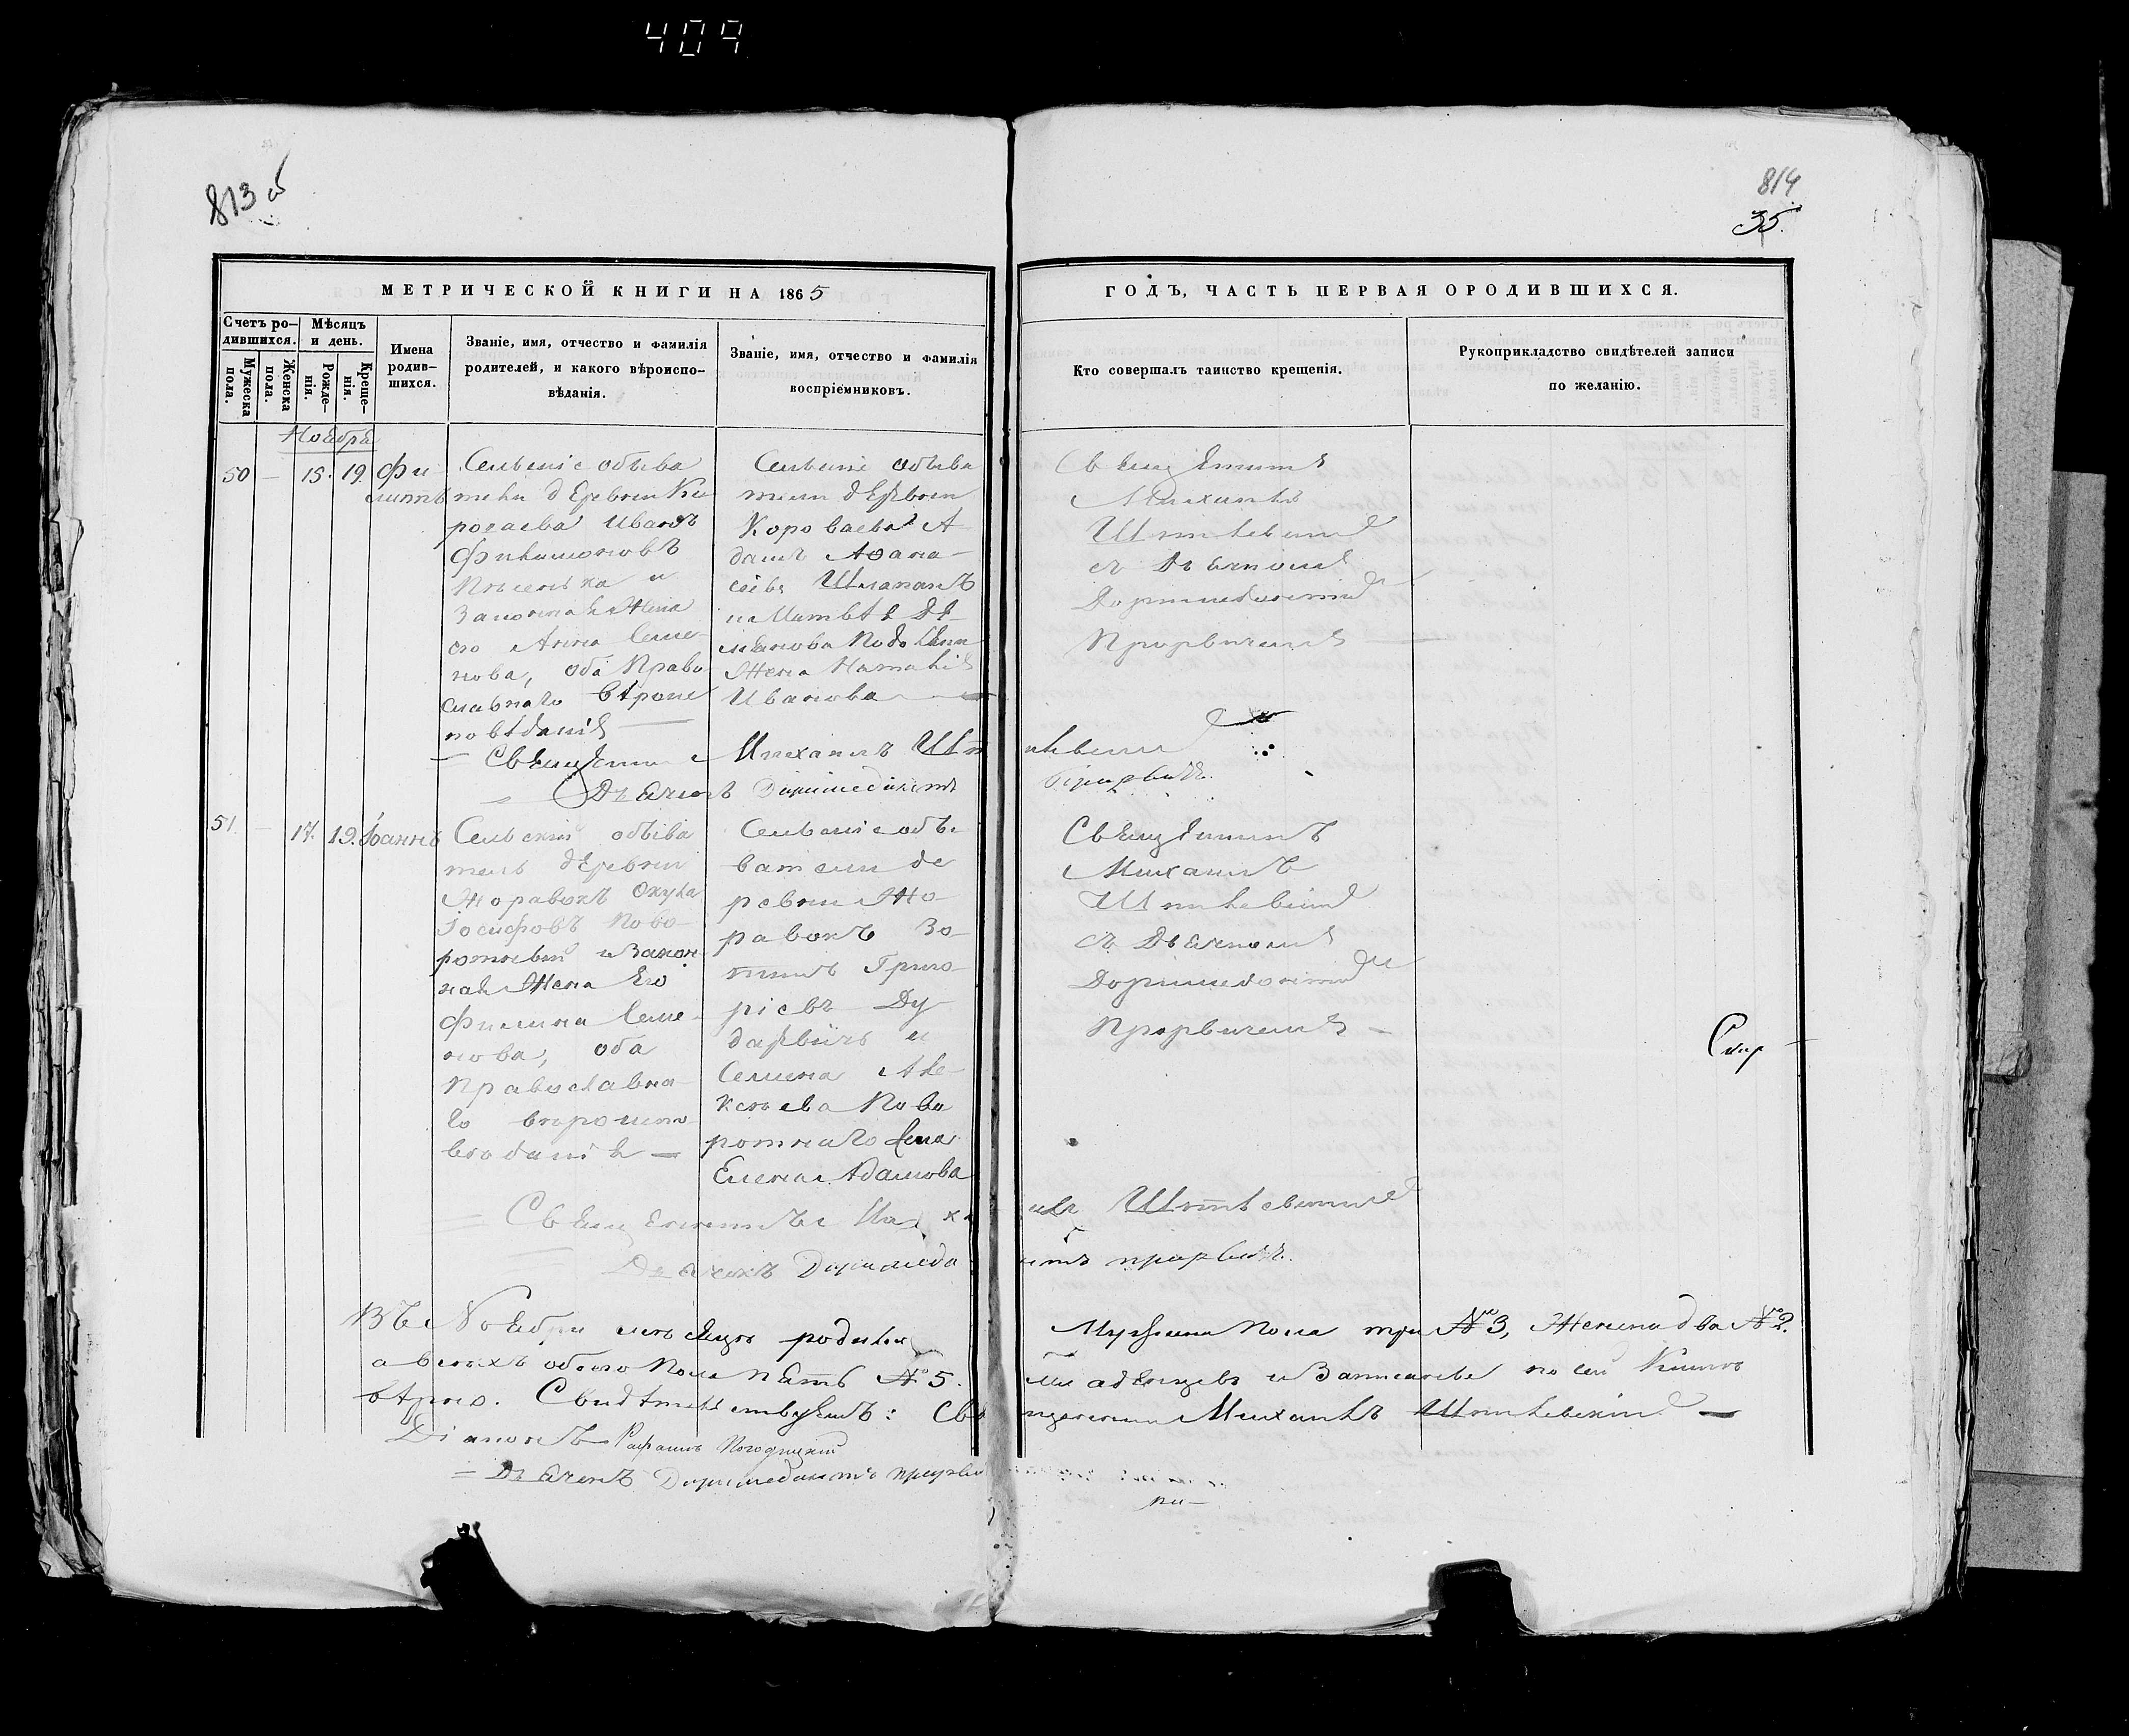 409
813 об
814
35.
МЕТРИЧЕСКОЙ КНИГИ НА 1865
ГОДЪ, ЧАСТЬ ПЕРВАЯ ОРОДИВШИХСЯ.
Счетъ ро-
дившихся.
Мужеска
пола.
Женска
пола.
Мѣсяцъ
и день.
Рожде-
нія.
Креще-
нія.
Имена
родив-
шихся.
Званіе, имя, отчество и фамилія
родителей, и какого вѣроиспо-
вѣданія.
Званіе, имя, отчество и фамилія
воспріемниковъ.
Кто совершалъ таинство крещенія.
Рукоприкладство свидѣтелей записи
по желанію.
Ноября
50 – 15. 19.
Фи
Сельскіе обыва
тели деревни Ко
роваева Иванъ
Филимоновъ
и
Законная Жена
его Анна Семе-
нова, оба Право
славнаго вѣроис
повѣданія
Сельскіе обыва
тели деревни
Короваева А
дамъ Афана-
сіевъ
и Матвѣя Де-
Жена Наталія
Иванова
Священникъ
Михаилъ
съ Дьячкомъ
Доримедонтомъ
Прорвичемъ
Священникъ Михаилъ
Дьячокъ Доримедонтъ Прорвичъ.
51 – 17. 19. Іоаннъ
Сельскій обыва
тель деревни
Жоравокъ
Іосифовъ Пово-
ротный и Закон
ная Жена Его
Семе-
нова, оба
Православна-
го вѣроиспо
вѣданія –
Сельскіе обы
ватели де
ревни Жо-
равокъ Зо-
тикъ Григо-
ріевъ Ду-
и
Семена Але-
ксѣева Пово
ротнаго Жена
Елена Адамова
Священникъ
Михаилъ
съ Дьячкомъ
Доримедонтомъ
Прорвичемъ –
Скр
Священникъ
Дьячокъ Доримедонтъ Прорвичъ.
Въ Ноябрѣ мѣсяцѣ родилось Мужеска Пола три № 3, Женска два № 2.
а всѣхъ обоего Пола пять № 5. младенцевъ и Записаны по сей Книгѣ
вѣрно. Свидѣтельствуемъ: Священникъ Михаилъ
Діаконъ
Дьячокъ Доримедонтъ Прорвичъ